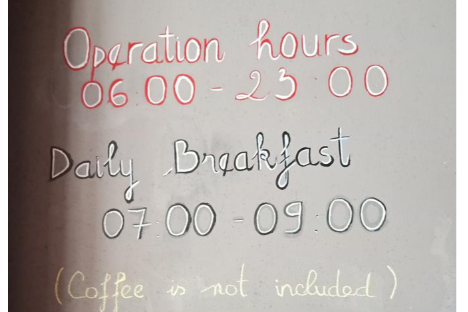 Operation hours
06:00 - 23:00
Daily Breakfast
07:00 - 09:00
(Coffee is not included)